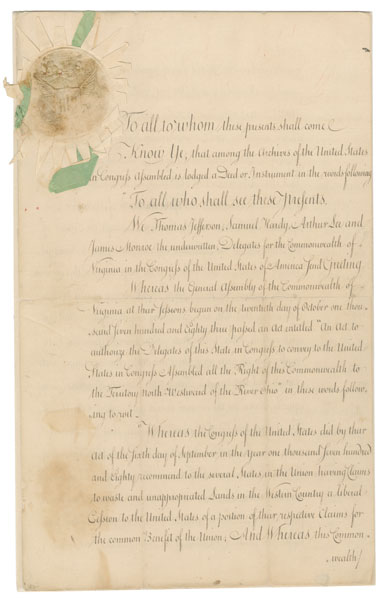 To all to whom these presents shall come
Know Ye, that among the Archives of the United States
in Congress Assembled is lodged a Deed or Instrument in the words following
To all who shall see these Presents.
We Thomas Jefferson, Samuel Hardy, Arthur Lee and
James Monroe the underwritten Delegates for the Commonwealth of
Virginia in the Congress of the United States of America Send Greeting
Whereas the General Assembly of the Commonwealth of
Virginia at their Sessions begun on the twentieth day of October one thou-
sand Seven hundred and Eighty three passed an Act entitled "An Act to
authorize the Delegates of this State in Congress to convey to the United
States in Congress Assembled all the Right of this Commonwealth to
the Territory north Westward of the River Ohio" in these words follow-
ing to wit.
"Whereas the Congress of the United States did by their
Act of the Sixth day of September in the Year one thousand Seven hundred
and Eighty recommend to the several States in the Union having Claims
to waste and unappropriated Lands in the Western Country a liberal
Cession to the United States of a portion of their respective Claims for
the common Benefit of the Union; And Whereas this Common-
wealth/